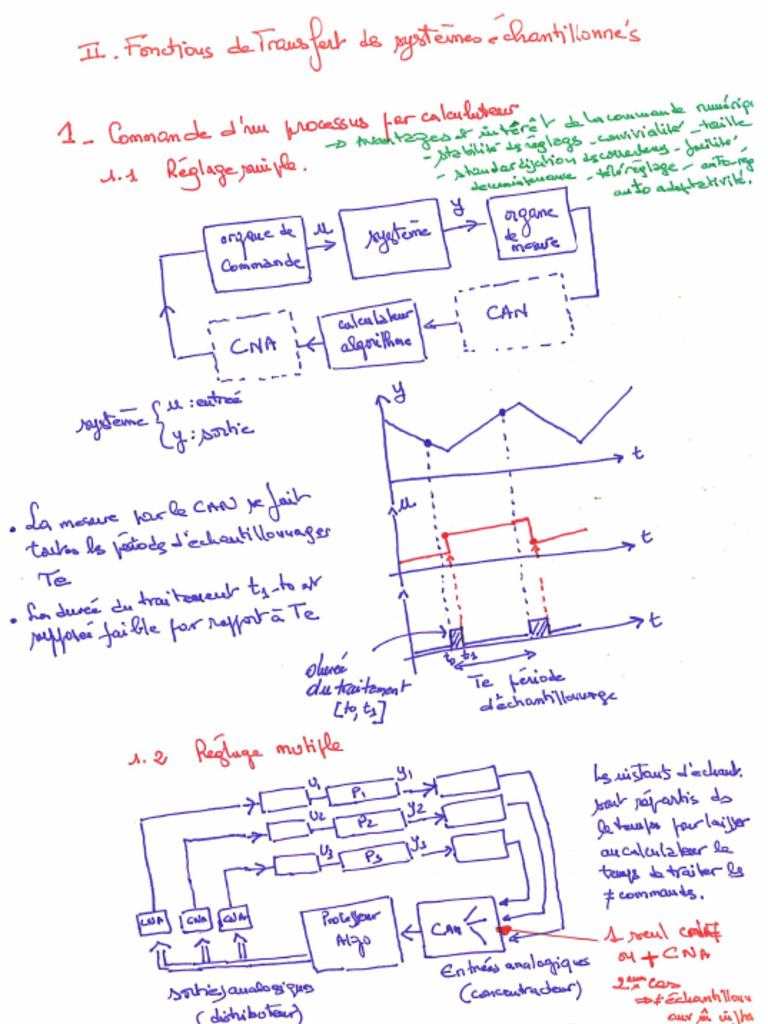 II. Fonctions de Transfert des systèmes échantillonnés
1 - Commande d'un processus par calculateur
→ avantages et intérêt de la commande numériq
- stabilité des réglages - convivialité - taille
- standardisation des correcteurs - facilité
de maintenance - téléréglage - auto-rég
auto adaptativité.
1.1 Réglage simple.
organe de
commande
u
système
y
organe
de
mesure
CNA
calculateur
algorithme
CAN
système { u : entrée
y : sortie
y
t
• La mesure par le CAN se fait
toutes les périodes d'échantillonnages
Te
u
t
• La durée du traitement t1-t0 est
supposée faible par rapport à Te
t
t0 t1
durée
du traitement
[t0, t1]
Te période
d'échantillonnage
1.2 Réglage multiple
U1 P1 y1
U2 P2 y2
U3 P3 y3
Les instants d'échant.
sont répartis ds
le temps pour laisser
au calculateur le
temps de traiter les
≠ commandes.
CNA CNA CNA
Processeur
Algo
CAN
1 seul
ou + CNA
2eme cas
⇒ ≠ échantillon
Entrées analogiques
(concentrateur)
sorties analogiques
(distributeur)